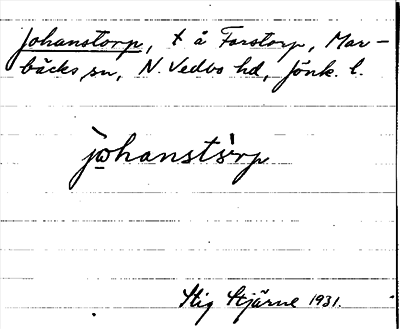 Johanstorp, t å Forstorp, Mar-
bäcks sn, N. Vedbo hd, Jönk. l.
jo̲hanstórp
Stig Stjärne 1931.